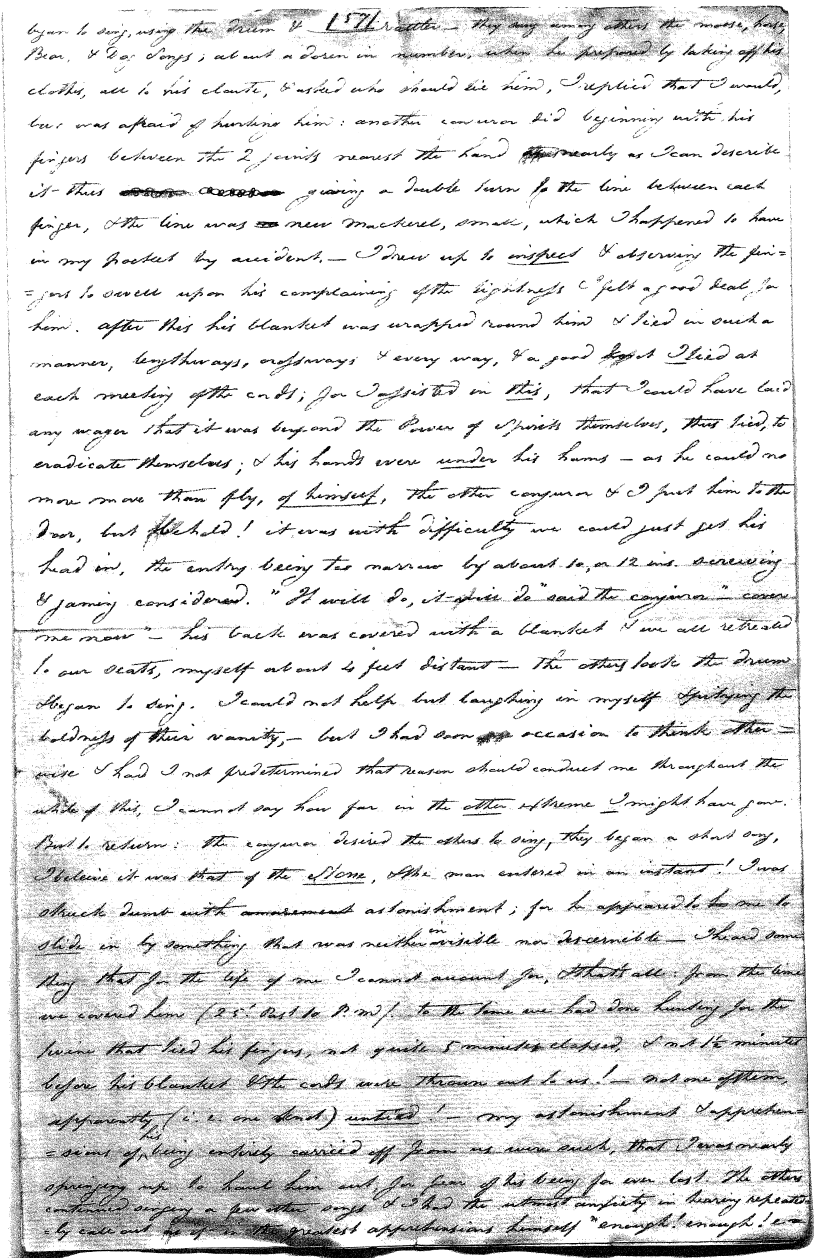 began to sing, using the drum & [571] rattler — they sung among others the moose, horse,
Bear, & Dog Songs; about a dozen in number, when he prepared by taking off his
clothes, all to his cloute, & asked who should tie him, I replied that I would,
but was afraid of hurting him: another conjuror did beginning with his
fingers between the 2 joints nearest the hand nearly as I can describe
it — thus giving a double turn to the line between each
finger, & the line was new mackerel, small, which I happened to have
in my pocket by accident. — I drew up to inspect & observing the fin=
=gers to swell upon his complaining of the tightness I felt a good deal for
him. after this his blanket was wrapped round him & tied in such a
manner, lengthways, crossways & every way, & a good knot I tied at
each meeting of the cords; for I assisted in this, that I could have laid
any wager that it was beyond the Power of Spirits themselves, thus tied, to
eradicate themselves; & his hands were under his hams — as he could no
more more than fly, of himself, the other conjuror & I put him to the
door, but behold! it was with difficulty we could just get his
head in, the entry being too narrow by about 10, or 12 ins. screwing
& jaming considered. "It will do, it will do" said the conjuror "— cover
me now" — his back was covered with a blanket & we all retreated
to our seats, myself about 4 feet distant — The others took the drum
& began to sing. I could not help but laughing in myself & pitying the
boldness of their vanity, — but I had soon occasion to think other=
wise & had I not predetermined that reason should conduct me throughout the
whole of this, I cannot say how far in the other extreme I might have gone.
But to return: the conjuror desired the others to sing, they began a short song,
I beleive it was that of the Stone, & the man entered in an instant! I was
struck dumb with amazement astonishment; for he appeared to me to
slide in by something that was neither invisible nor discernible — I heard some
thing that for the life of me I cannot account for, & that's all: from the time
we covered him (25' Past 10 P.M.) to the time we had done hunting for the
twine that tied his fingers, not quite 5 minutes elapsed, & not 1½ minutes
before his blanket & the cords were thrown out to us! — not one of them,
apparently (i.e. one knot) untied! — my astonishment & apprehen=
=sions of his being entirely carried off from us were such, that I was nearly
springing up to haul him out, for fear of his being for ever lost. The others
continued singing a few other songs & I had the utmost anxiety in hearing repeated
=ly call out as if in the greatest apprehensions himself "enough! enough! e—